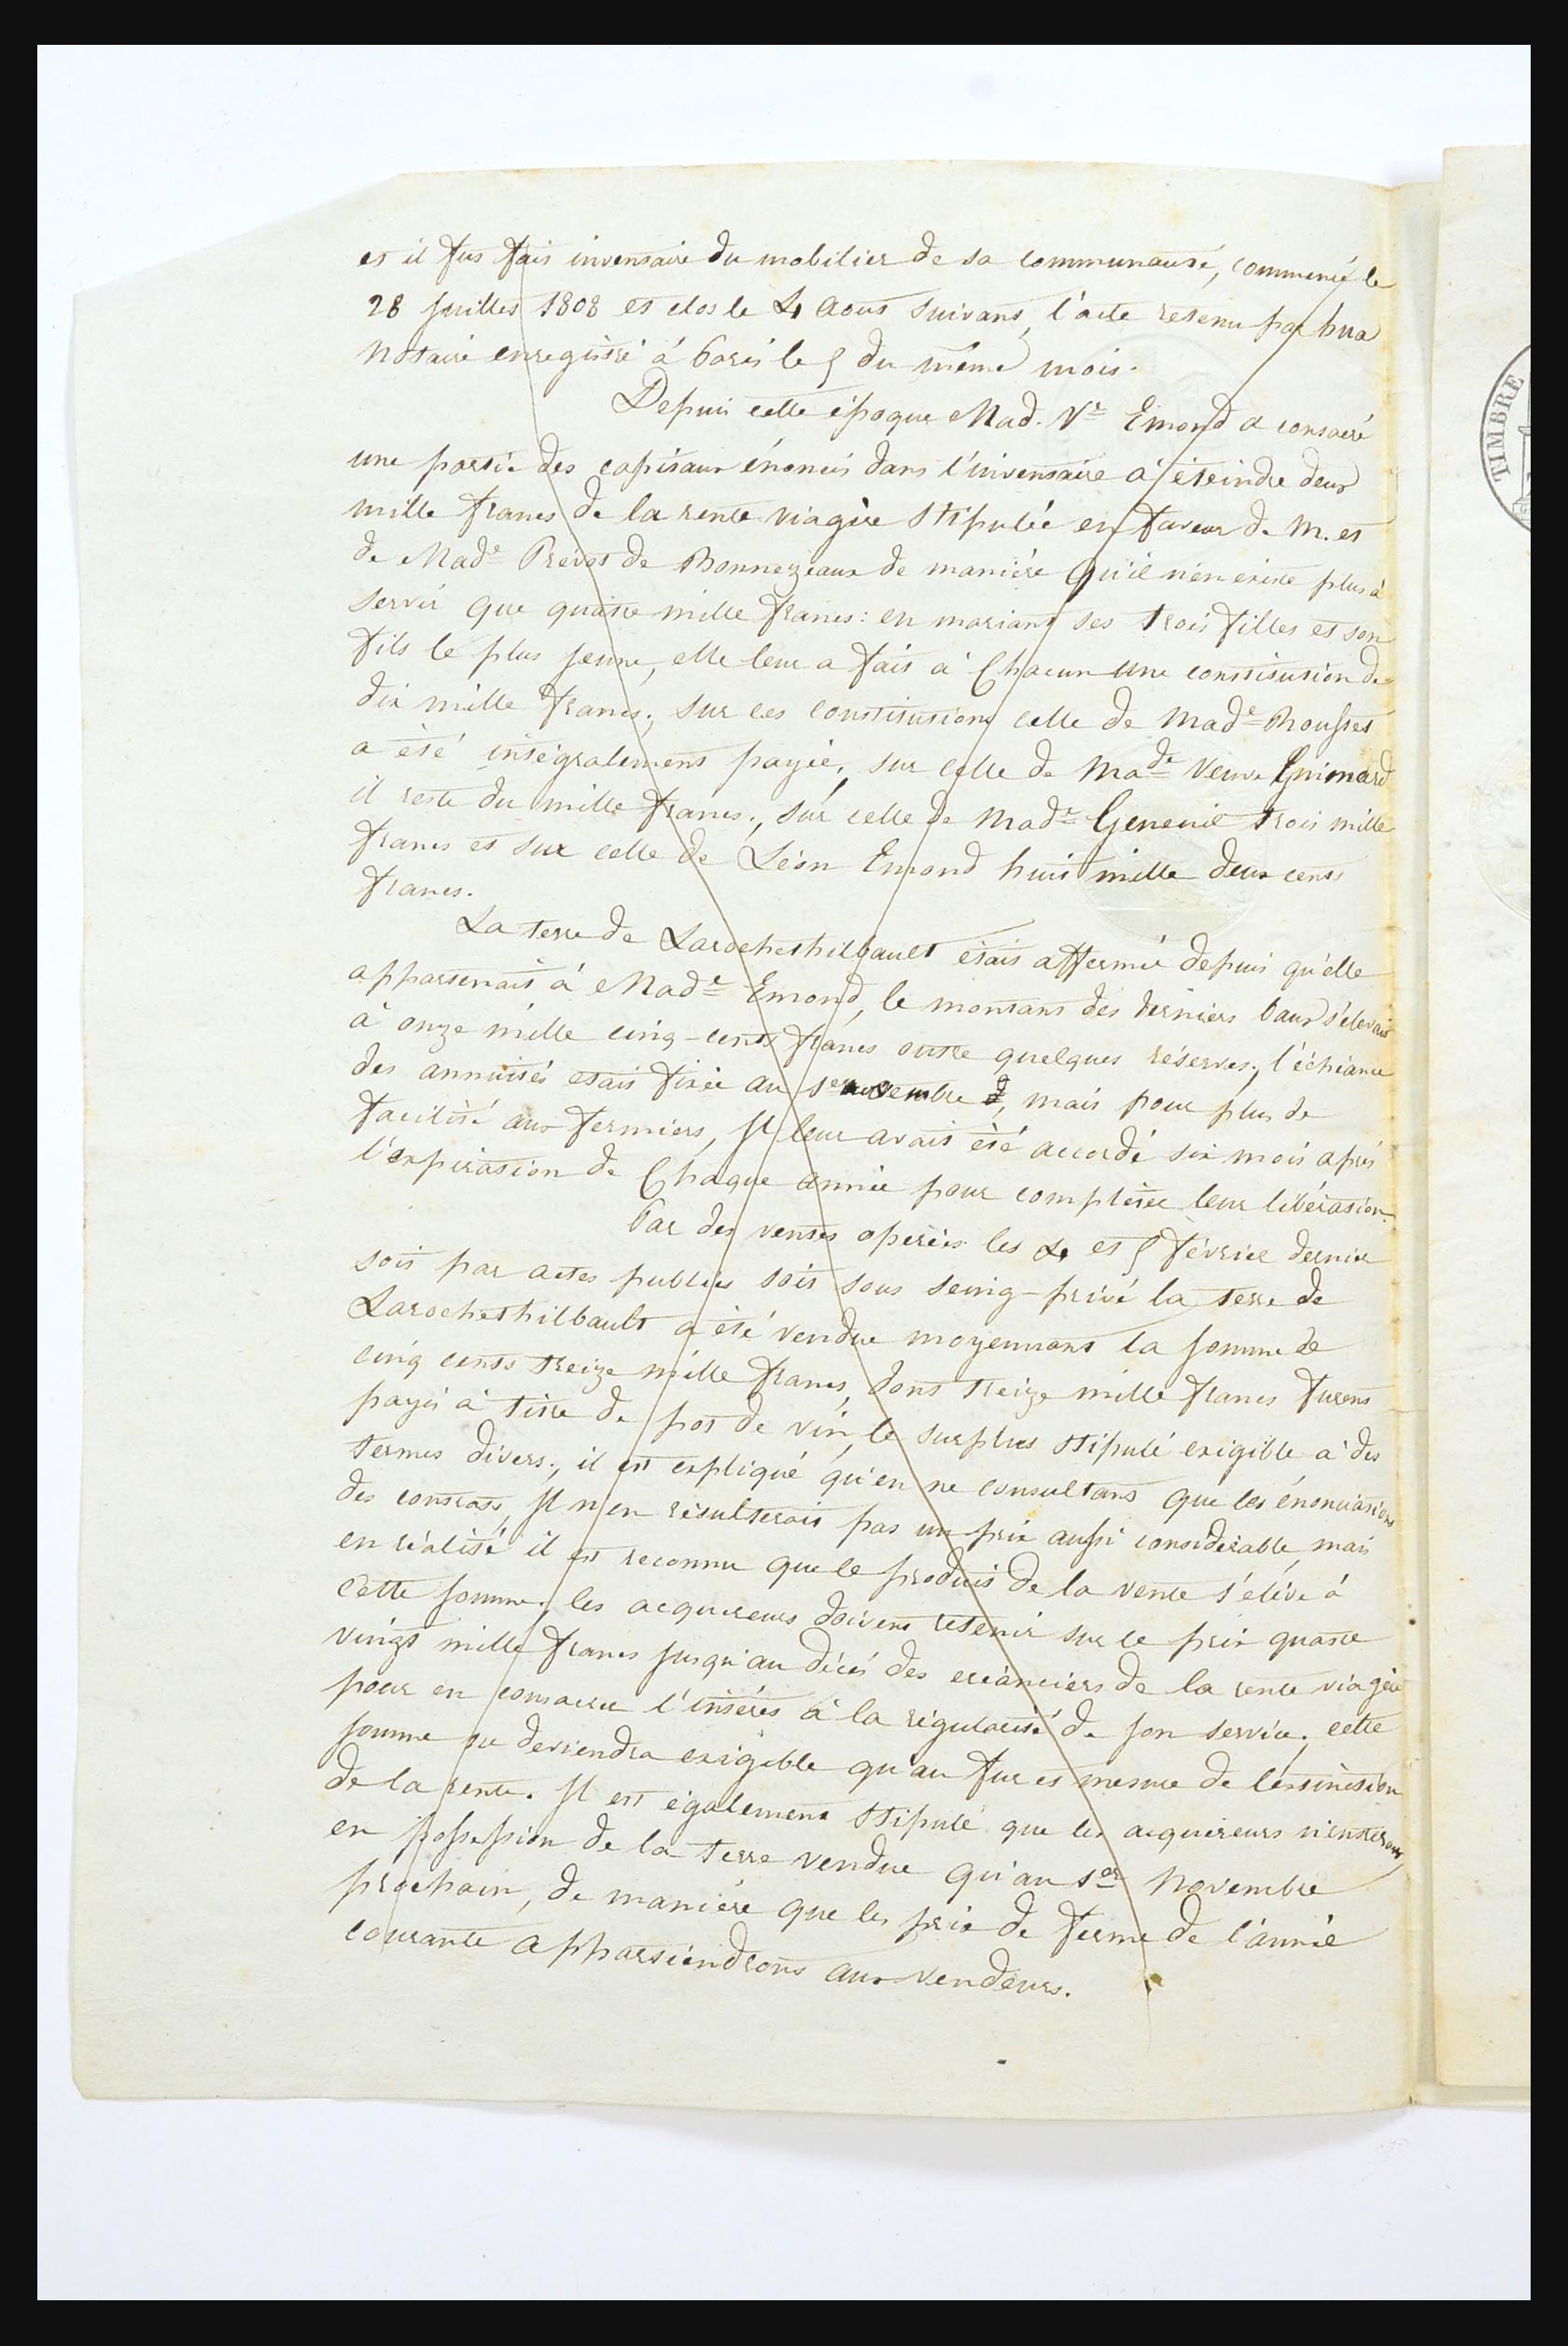 et il fut fait inventaire du mobilier de sa communauté, commencé le
28 Juillet 1808 et clos le 4 aout suivant, l'acte retenu par hua
Notaire enregistré à Paris le 5 du même mois.
Depuis cette époque Mad. Ve Emond a consacré
une partie des capitaux énoncés dans l'inventaire à éteindre deux
mille francs de la rente viagère stipulée en faveur de M. et
de Made Prevot de Bonnezeaux de manière qu'il n'en existe plus à
servir que quatre mille francs: en mariant ses trois filles et son
fils le plus jeune, elle leur a fait à Chacun une constitution de
dix mille francs; sur ces constitutions celle de Made Rousset
a été intégralement payée, sur celle de Made Veuve Guimard
il reste du mille francs., sur celle de Made Geneuil trois mille
francs et sur celle de Léon Emond huit mille deux cents
francs.
La terre de Larochethilbault était affermée depuis qu'elle
appartenait à Made Emond, le montant des derniers baux s'élevait
à onze mille cinq-cents francs outre quelques réserves, l'échéance
des annuités etait fixée au 1er novembre, mais pour plus de
facilité aux fermiers, Il leur avait été accordé six mois après
l'expiration de Chaque année pour complèter leur libération.
Par des ventes opérées les 4 et 5 février dernier
soit par actes publics soit sous seing-privé la terre de
Larochethilbault a été vendue moyennant la somme de
cinq cents treize mille francs, dont treize mille francs furent
payés à titre de pot de vin, le surplus stipulé exigible à des
termes divers., il est expliqué qu'en ne consultant que les énonciations
des contrats, Il n'en résulterait pas un prix aussi considérable, mais
en réalité il est reconnu que le produit de la vente s'élève à
Cette somme; les acquereurs doivent retenir sur le prix quatre
vingt mille francs Jusqu'au décès des créanciers de la rente viagère
pour en consacrer l'intérêt à la régularité de son service, cette
somme ne deviendra exigible qu'au fur et mesure de l'extinction
de la rente. Il est également stipulé que les acquéreurs n'entreront
en possession de la terre vendue qu'au 1er Novembre
prochain, de manière que les prix de ferme de l'année
courante appartiendront aux vendeurs.
TIMBRE